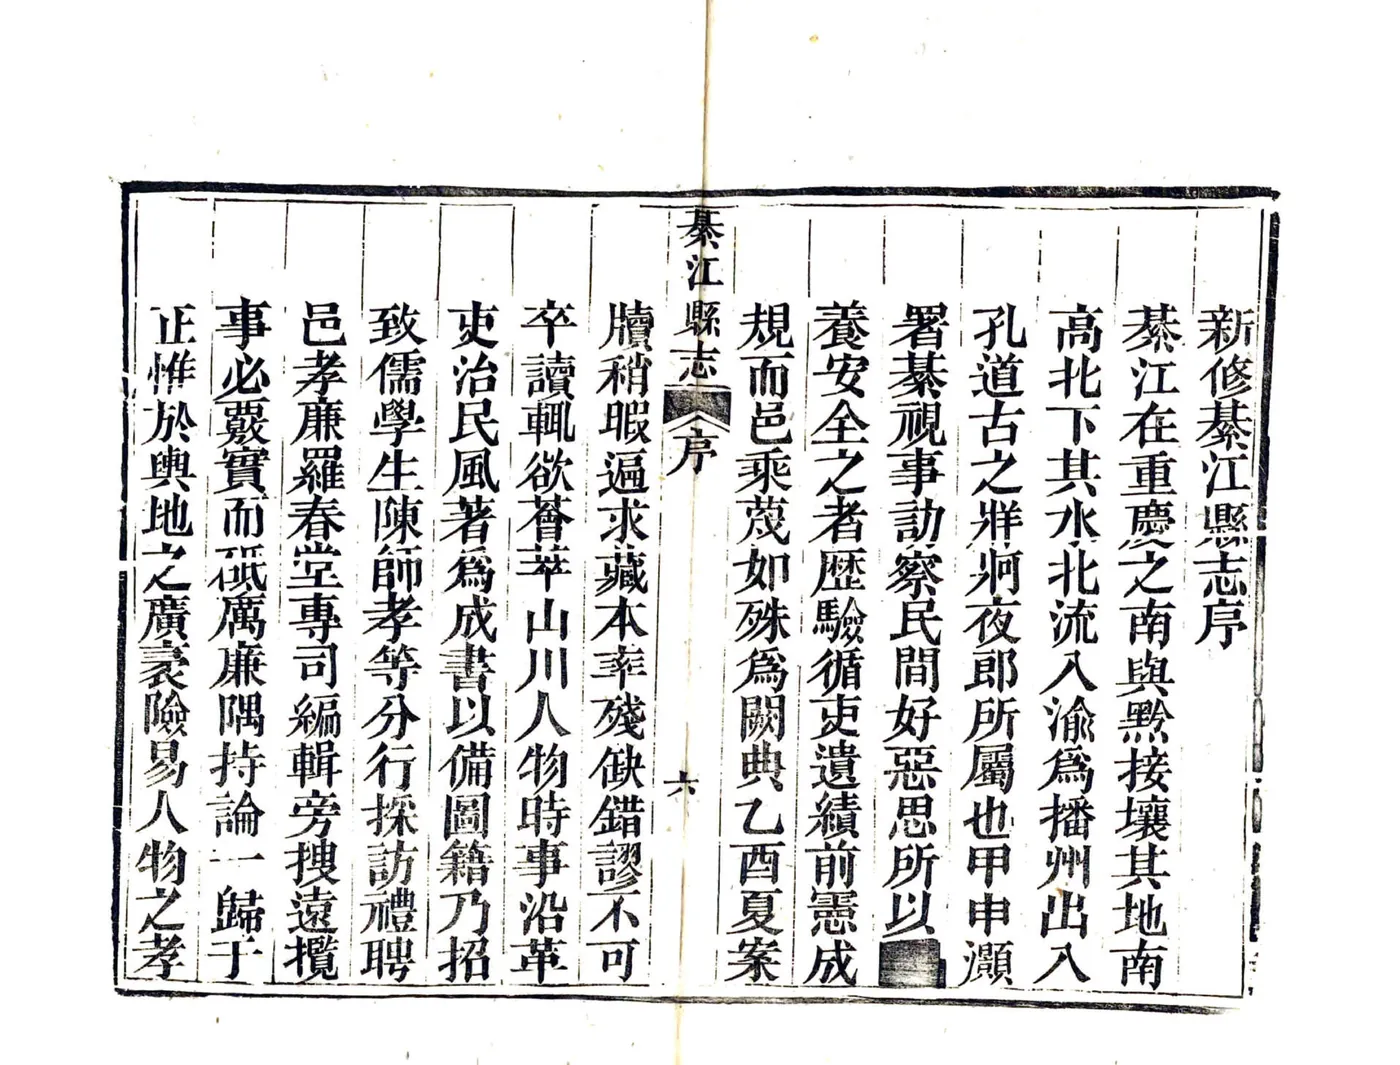 新修綦江縣志序
綦江在重慶之南與黔接壤其地南
高北下其水北流入渝爲播州出入
孔道古之牂牁夜郎所屬也甲申灝
署綦視事訪察民間好惡思所以
養安全之者歷驗循吏遺績前憲成
規而邑乘蔑如殊爲闕典乙酉夏案
綦江縣志
序
六
牘稍暇遍求藏本率殘缺錯謬不可
卒讀輒欲薈萃山川人物時事沿革
吏治民風著爲成書以備圖籍乃招
致儒學生陳師孝等分行採訪禮聘
邑孝廉羅春堂專司編輯旁搜遠攬
事必覈實而砥厲廉隅持論一歸于
正惟於輿地之廣袤險易人物之孝